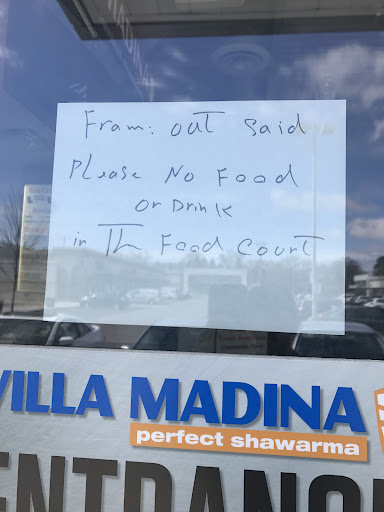 Fram: out said
Please No Food
or Drink
in Th Food Court
VILLA MADINA
perfect shawarma
ENTRANC